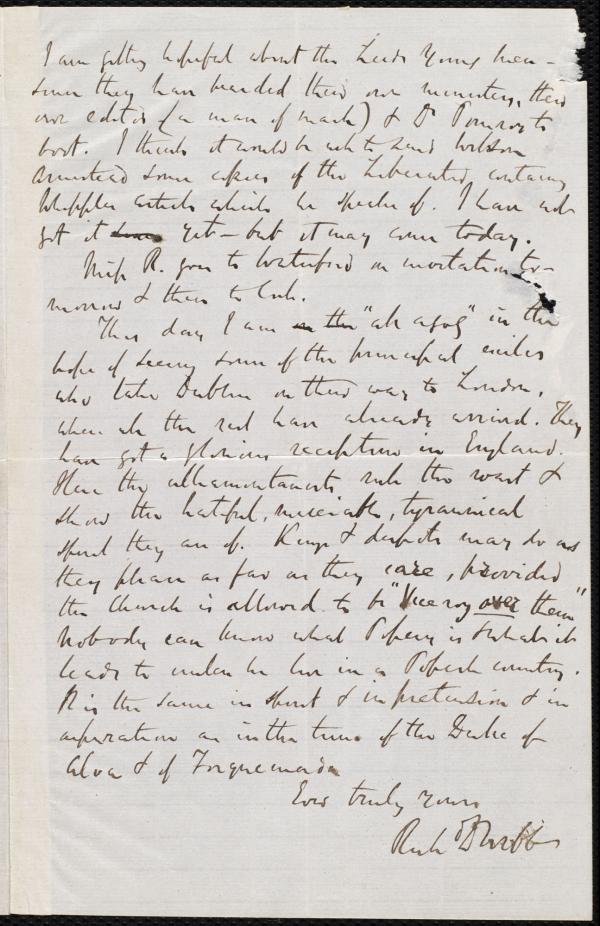 I am getting hopeful about the Leeds Young Men -
since they have branded their own ministers, their
own editor (a man of mark) & Dr Pomroy to
boot. I think it would be well to send Wilson
Armistead some copies of the Liberator, containing
Whipple's article which he speaks of. I have not
got it yet - but it may come today.
Miss R. goes to Waterford on invitation to-
morrow & then to Cork.
This day I am "all agog" in the
hope of seeing some of the principal exiles
who take Dublin on their way to London,
where all the rest have already arrived. They
have got a glorious reception in England.
Here the ultramontanists rule the roast &
show the hateful, miserable, tyrannical
spirit they are of. Kings & despots may do as
they please as far as they care, provided
the Church is allowed to be "Viceroy over them"
Nobody can know what Popery is & what it
leads to unless he live in a Popish country.
It is the same in spirit & in pretension & in
aspiration as in the time of the Duke of
Alva & of Torquemada
Ever truly yours
Richd D Webb